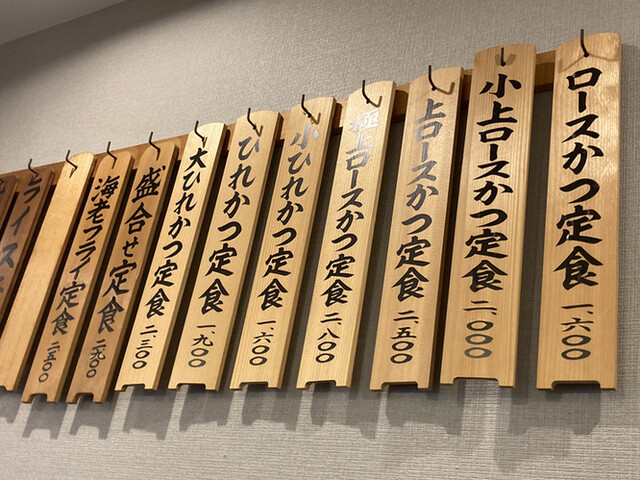 ロースかつ定食 一、六〇〇
小上ロースかつ定食 二、〇〇〇
上ロースかつ定食 二、五〇〇
極上ロースかつ定食 二、八〇〇
小ひれかつ定食 一、六〇〇
ひれかつ定食 一、九〇〇
大ひれかつ定食 二、三〇〇
盛合せ定食 二、九〇〇
海老フライ定食 二、五〇〇
ライス